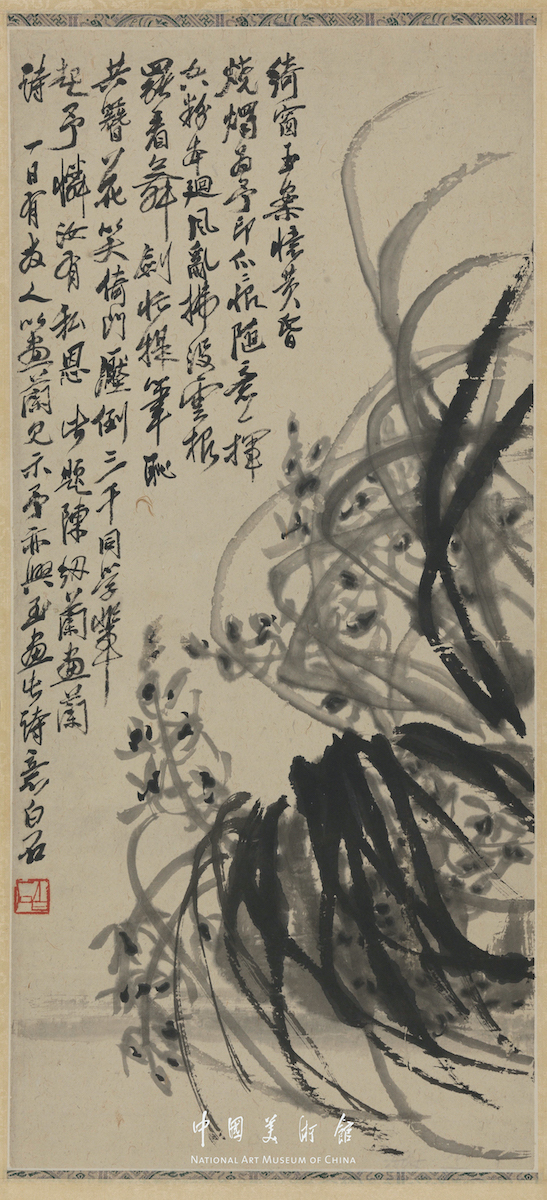 綺窗玉案憶黃昏
燒燭為予印爪痕隨意一揮
空粉本迴風亂拂沒雲根
罷看舞劍忙提筆恥
共簪花笑倚門壓倒三千同學輩
起予憐汝有私恩 此題陳紉蘭畫蘭
詩 一日有友人以畫蘭見示予亦興至畫此詩意白石
中國美術館
NATIONAL ART MUSEUM OF CHINA